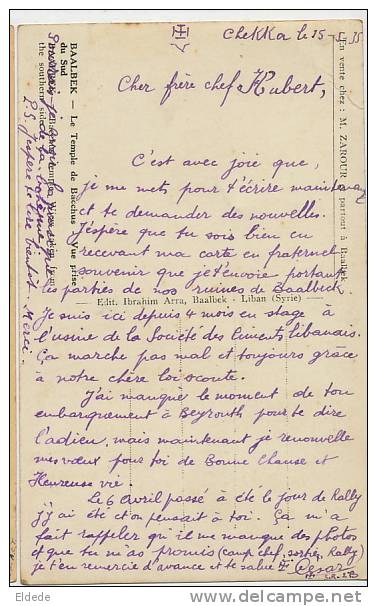 Chekka le 15-5-35
Cher frère chef Hubert,
C'est avec joie que,
je me mets pour t'écrire maintenant
et te demander des nouvelles.
J'éspère que tu sois bien en
recevant ma carte en fraternel
souvenir que je t'envoie portant
les parties de nos ruines de Baalbeck
Je suis ici depuis 4 mois en stage à
l'usine de la Société des ciments libanais.
Ça marche pas mal et toujours grâce
à notre chère loi scoute.
J'ai manqué le moment de ton
embarquement à Beyrouth pour te dire
l'adieu, mais maintenant je renouvelle
mes vœux pour toi de Bonne Chanse et
Heureuse vie.
Le 6 Avril passé a été le jour de Rally
j'y ai été et on pensait à toi. Ça m'a
fait rappeler qu'il me manque des photos
et que tu m'as promis (camp chef, sorties, Rally)
je t'en remercie d'avance et te salue Cesar
BAALBEK — Le Temple de Bacchus — Vue prise
du Sud
the southern side
En vente chez : M. ZAROUR partout à Baalbek
Edit. Ibrahim Arra, Baalbek - Liban (Syrie)
P.S. J'espère te lire bientôt. Merci.
Delcampe.net